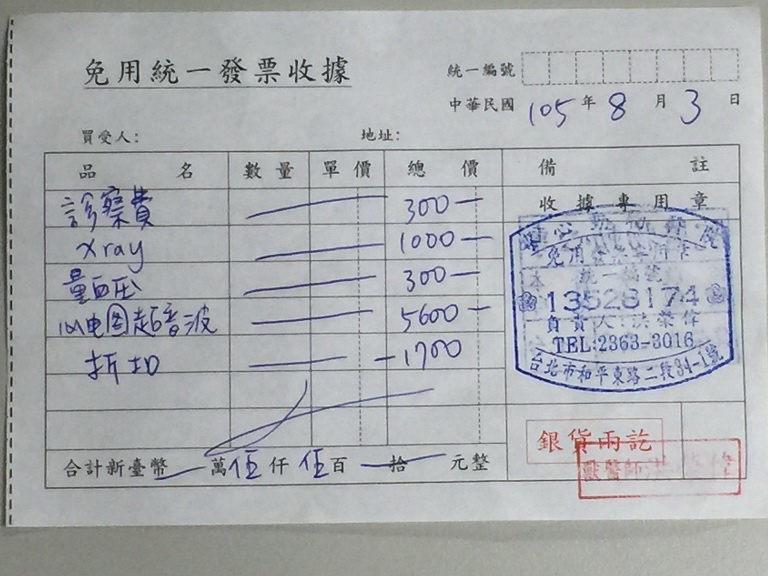 免用統一發票收據
統一編號
中華民國 105 年 8 月 3 日
買受人: 地址:
品名 數量 單價 總價 備註
診察費 300—
收據專用章
xray 1000—
量血压 300—
心电图超音波 5600—
折扣 -1700
免用統一發票專用章
統一編號
13528174
負責人:洪榮偉
TEL:2363-3016
台北市和平東路二段94-1號
銀貨兩訖
獸醫師洪
合計新臺幣 萬伍仟伍百 拾 元整